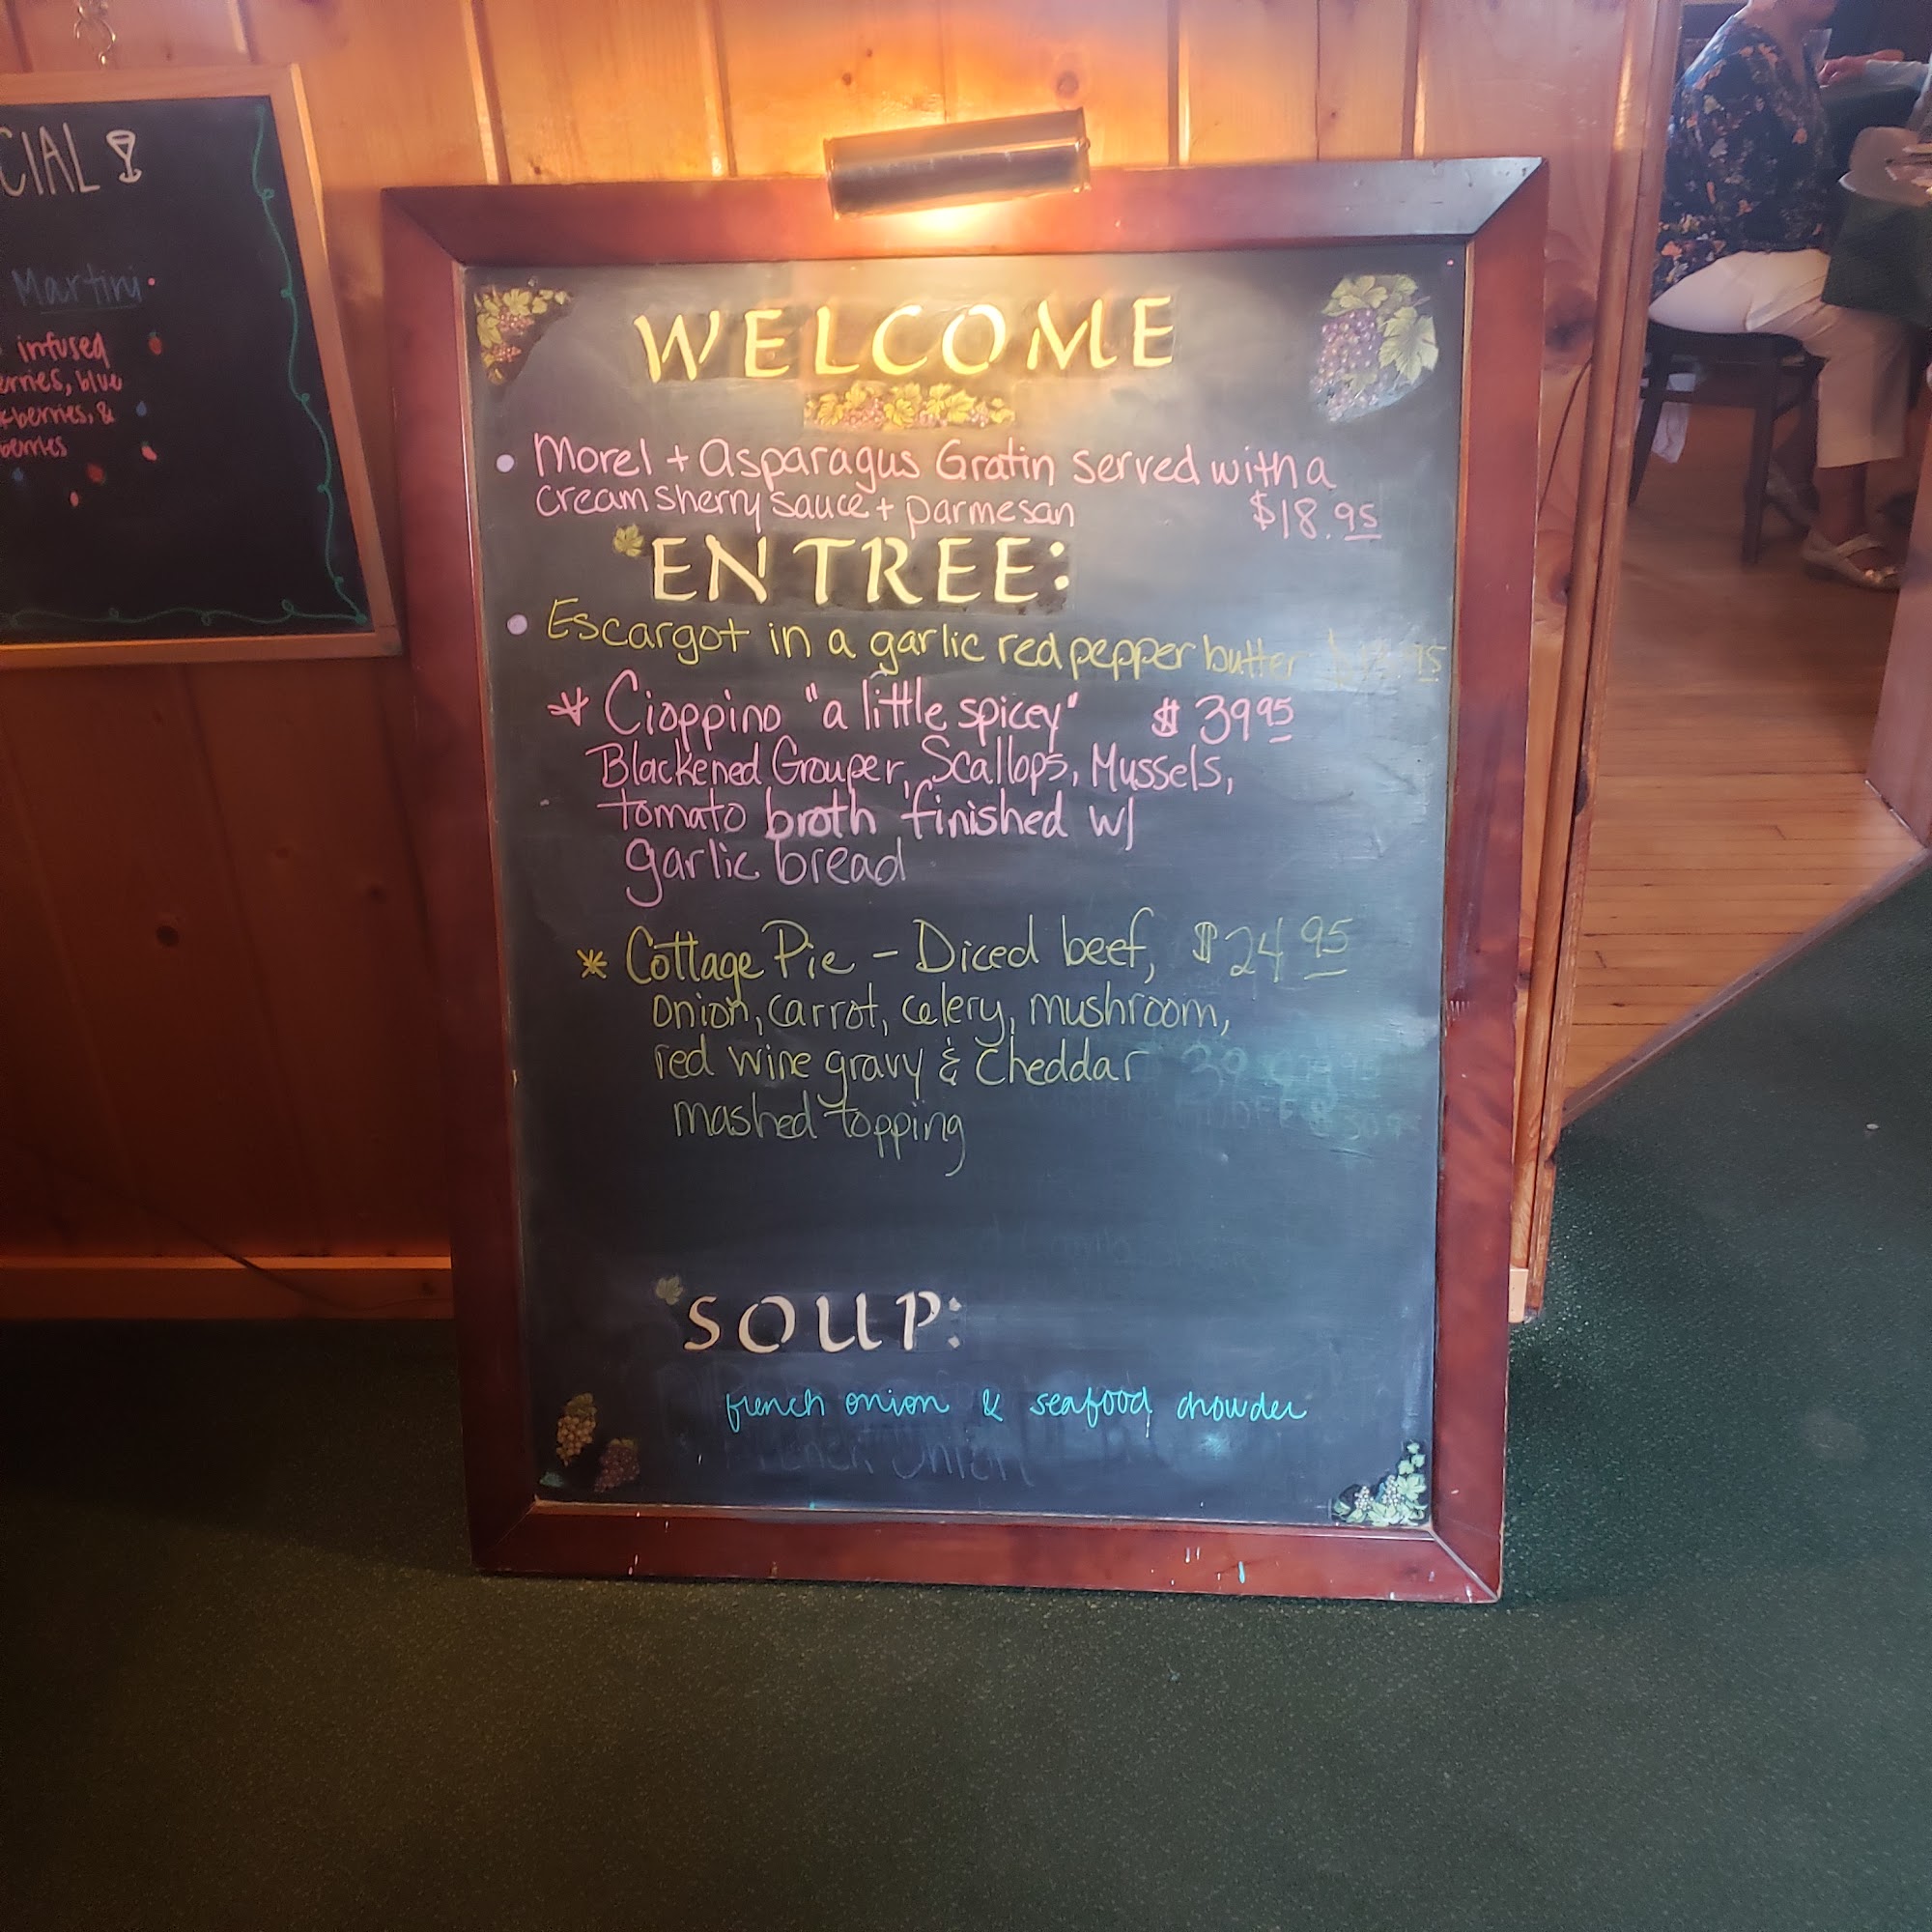 CIAL
Martini
infused
erries, blue
berries, &
berries
WELCOME
• Morel + Asparagus Gratin served with a
cream sherry sauce + parmesan $18.95
ENTREE:
• Escargot in a garlic red pepper butter
* Cioppino "a little spicey" $39 95
Blackened Grouper, Scallops, Mussels,
tomato broth finished w/
garlic bread
* Cottage Pie - Diced beef, $24 95
onion, carrot, celery, mushroom,
red wine gravy & cheddar
mashed topping
SOUP:
french onion & seafood chowder